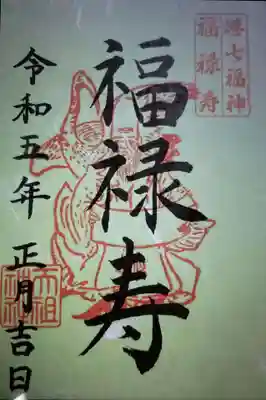 七福神
福禄寿
福禄寿
令和五年 正月吉日